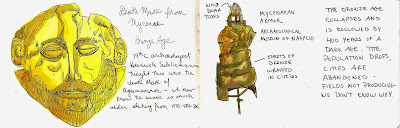 Death Mask from
Mycenae
Bronze Age
The archaeologist
Heinrich Schliemann
thought this was the
death mask of
Agamemnon - we now
know the mask is much
older dating from 1550-1500 BC
WILD
BOAR
TUSKS
MYCENAEAN
ARMOR
ARCHAEOLOGICAL
MUSEUM OF NAFPLIO
SHEETS OF
BRONZE
WRAPPED
IN CITIES
THE BRONZE AGE
COLLAPSES AND
IS FOLLOWED BY
400 YEARS OF A
DARK AGE. THE
POPULATION DROPS,
CITIES ARE
ABANDONED -
FIELDS NOT PRODUCING -
WE DON'T KNOW WHY.